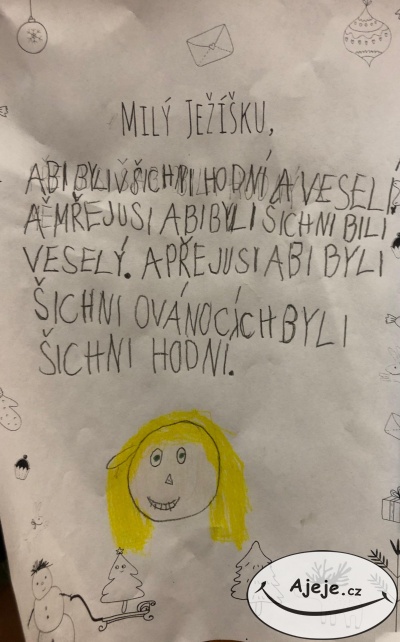 MILÝ JEŽÍŠKU,
ABI BYLI VŠICHNI HODNÍ A VESELI
A MŘEJUSI ABI BYLI ŠICHNI BILI
VESELÝ. A PŘEJUSI ABI BYLI
ŠICHNI OVÁNOCÍCH BYLI
ŠICHNI HODNÍ.
Ajeje.cz